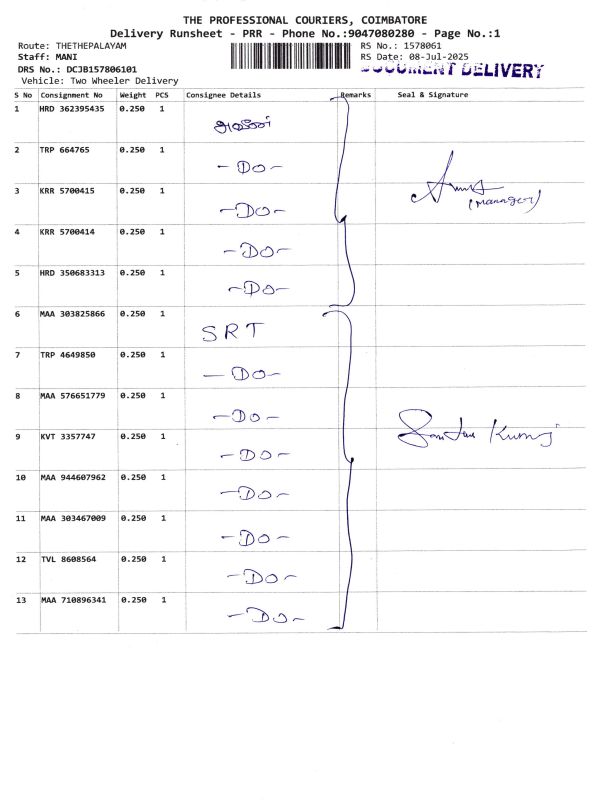 THE PROFESSIONAL COURIERS, COIMBATORE
Delivery Runsheet - PRR - Phone No.:9047080280 - Page No.:1
Route: THETHEPALAYAM
RS No.: 1578061
Staff: MANI
RS Date: 08-Jul-2025
DRS No.: DCJB157806101
DOCUMENT DELIVERY
Vehicle: Two Wheeler Delivery
S No Consignment No Weight PCS Consignee Details Remarks Seal & Signature
1 HRD 362395435 0.250 1
2 TRP 664765 0.250 1 -DO-
3 KRR 5700415 0.250 1 -DO- (Manager)
4 KRR 5700414 0.250 1 -DO-
5 HRD 350683313 0.250 1 -DO-
6 MAA 303825866 0.250 1 SRT
7 TRP 4649850 0.250 1 -DO-
8 MAA 576651779 0.250 1 -DO-
9 KVT 3357747 0.250 1 -DO-
10 MAA 944607962 0.250 1 -DO-
11 MAA 303467009 0.250 1 -DO-
12 TVL 8608564 0.250 1 -DO-
13 MAA 710896341 0.250 1 -DO-